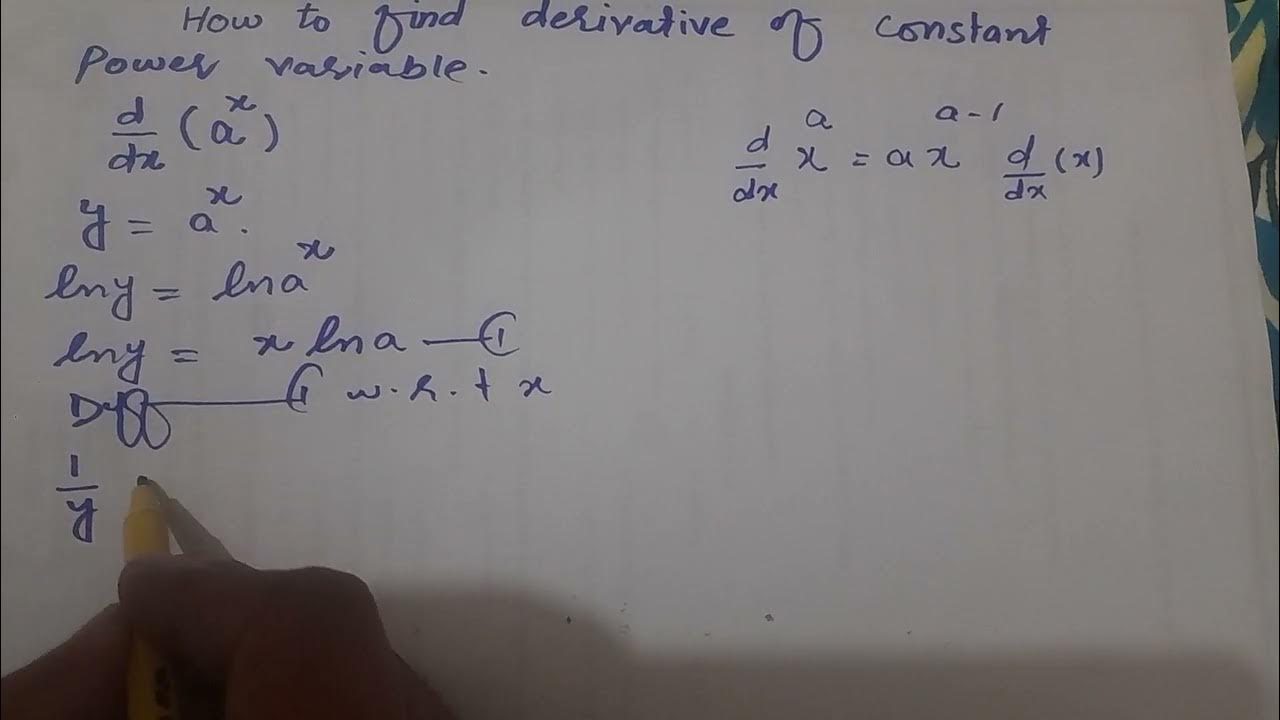 How to find derivative of constant
Power variable.
d/dx (a^x)
d/dx x^a = a x^(a-1) d/dx (x)
y = a^x.
ln y = ln a^x
ln y = x ln a — ①
Diff — ① w.r.t x
1/y